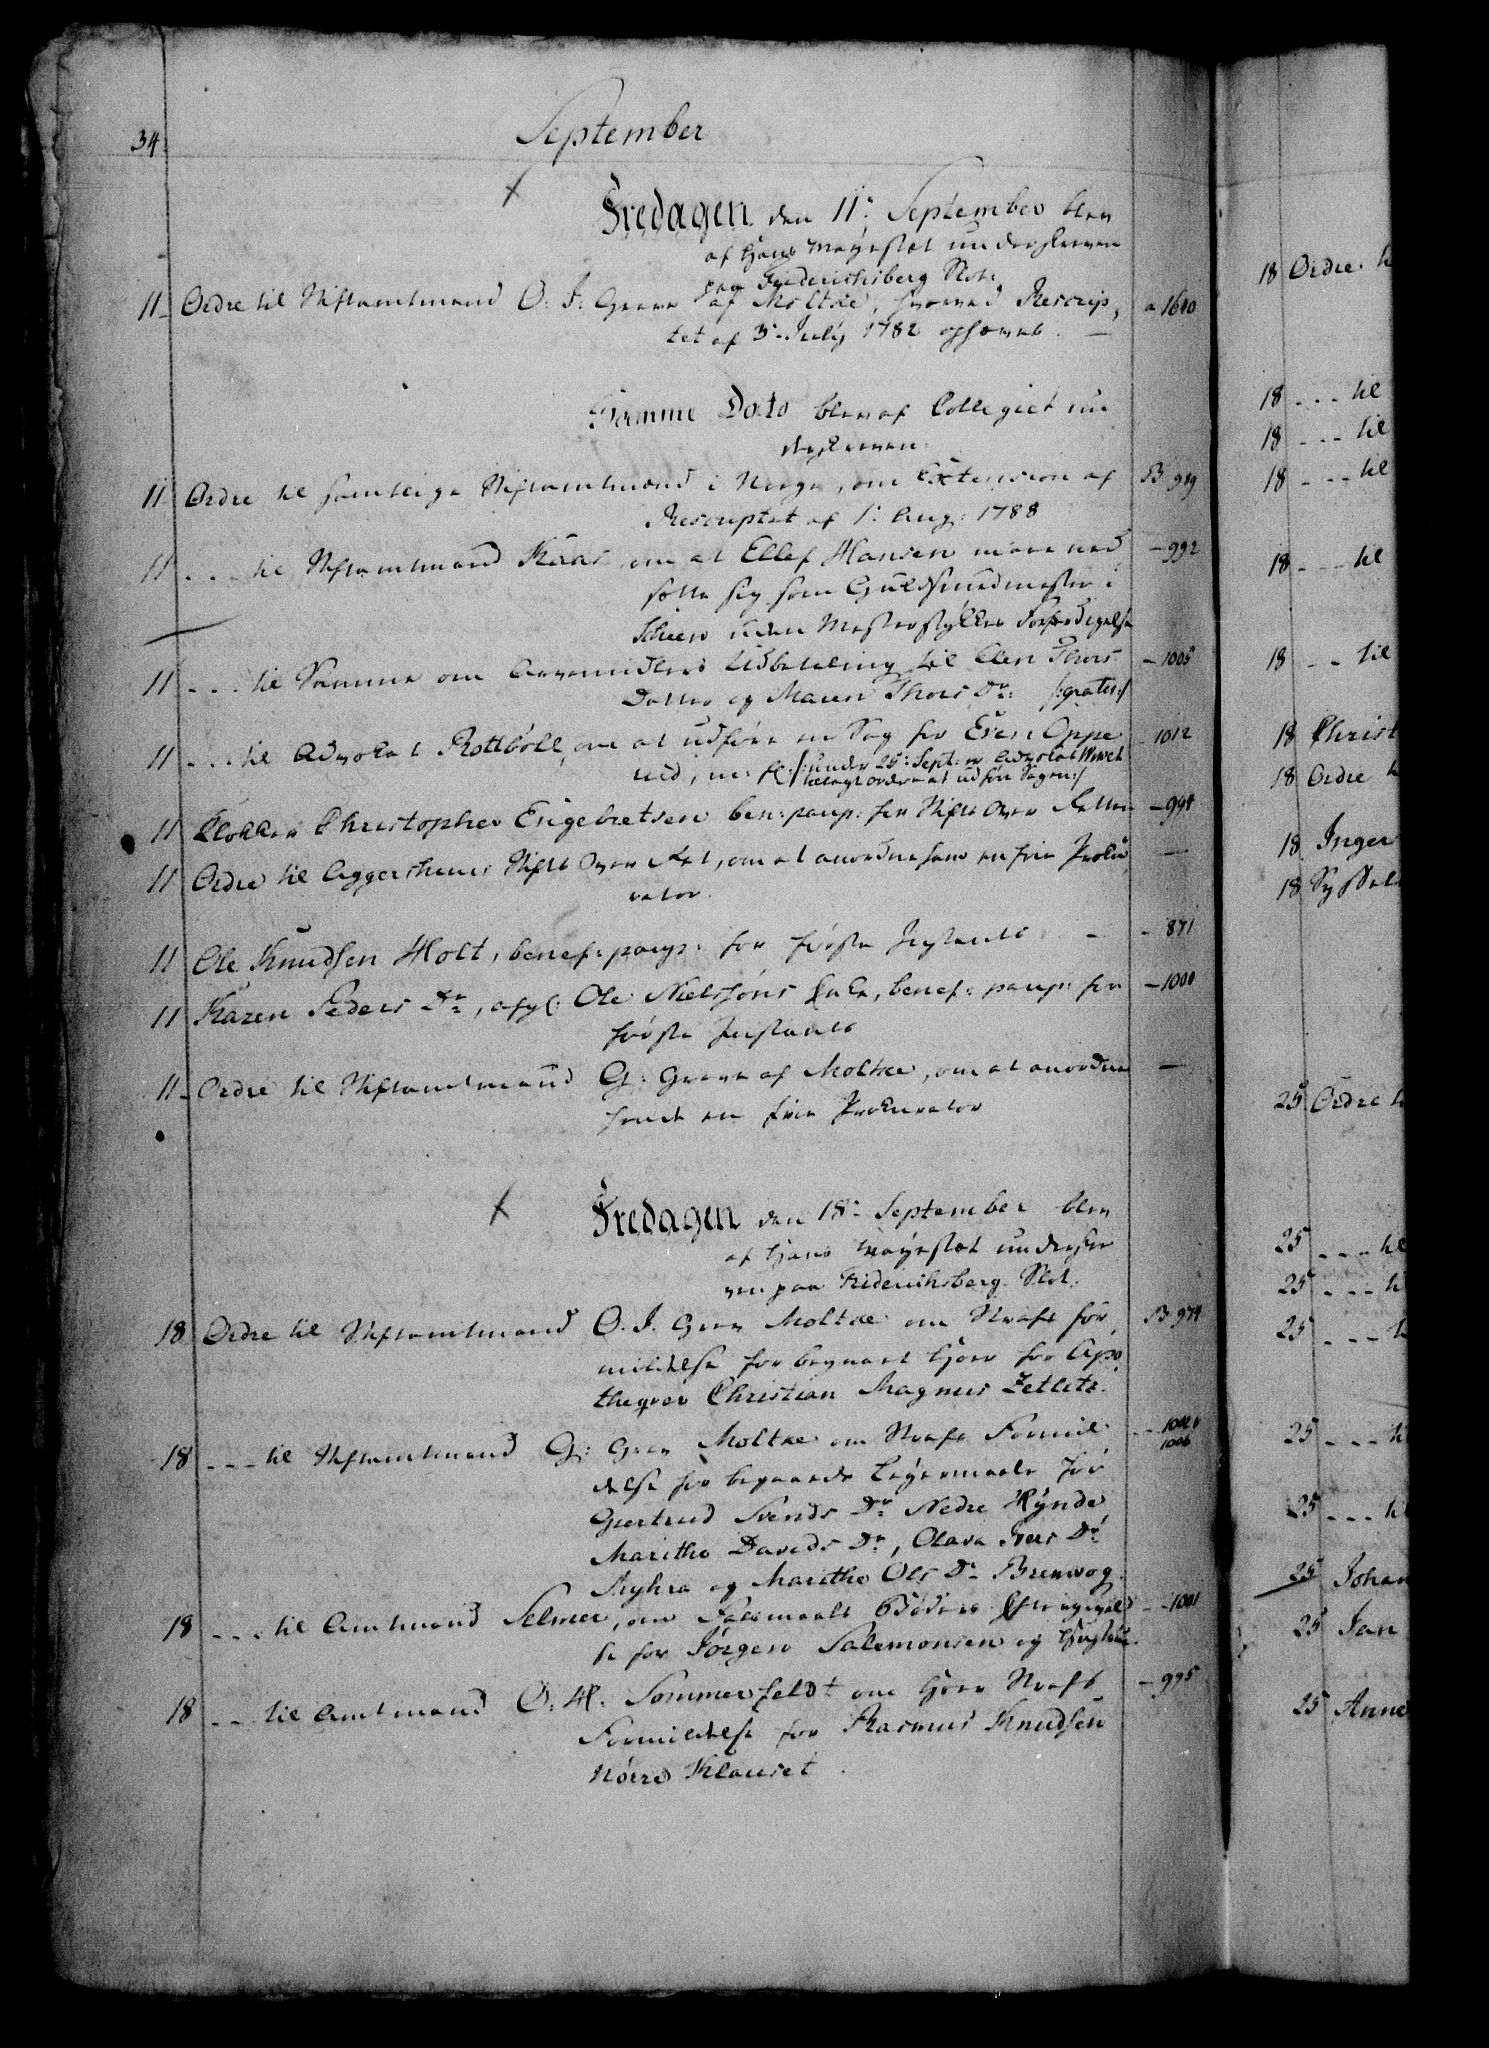 34
September
Fredagen den 11: September blev
af Hans Mayestæt underskreven
paa Friderichsberg Slot.
11 Ordre til Stiftamtmand O: J: Greve af Moltke, hvorved Rescrip, a 1640
tet af 3: July 1782 ophæves. —
Samme Dato blev af Collegiet un
derskreven.
11 Ordre til samtlige Stiftamtmænd i Norge, om Extension af B 989
Rescriptet af 1: Aug: 1788
11 . . . til Stiftamtmand Kaas, om at Ellef Hansen maae ned — 992
sætte sig som Guldsmedmester i
Scheen uden Mesterstykkes Forfærdigelse
11 . . . til Samme om Arvemidlers Udbetaling til Elen Thors — 1005
Datter og Maren Thors Dr: /:gratis:/
11 . . . til Advokat Rottböll, om at udføre en Sag for Even Oppe — 1012
ned, m: fl: /:under 25: Sept: er Advokat Winch
tillagt ordre at udføre Sagen:/
11 Klokker Christopher Engebretsen ben: paup: for Stifts Over Retten — 994
11 Ordre til Aggershuus Stifts Over Ret, om at anordne ham en frie Procu —
rator.
11 Ole Knudsen Holt, benef: paup: for første Instants — — 871
11 Karen Peders Dr, afg: Ole Nielsøns Enke, benef: paup: for — 1000
første Instants
11 Ordre til Stiftamtmand G: Greve af Moltke, om at anordne —
hende en frie Procurator
Fredagen den 18: September blev
af Hans Mayestæt underskre
ven paa Friderichsberg Slot.
18 Ordre til Stiftamtmand O. J. Grev Moltke om Straffs for B 974
mildelse for begaaet Hoer for Apo
theqver Christian Magnus Zetlitz.
18 . . . til Stiftamtmand G: Grev Moltke om Straffs Formil
1006
delse for begaaede Leyermaale for
Giertrud Svends Dr Nedre Hynde
Marithe Davids Dr, Olava Ivers Dr
Myhra og Marithe Ols Dr
18 . . . til Amtmand Selmer, om Leiermaals Bøders Eftergivel — 1001
se for Jörgen Salemonsen og Hustrue.
18 . . . til Amtmand O: H. Sommerfeldt om Hoers Straffs — 995
Formildelse for Rasmus Knudsen
Nörre Klauset.
18 Ordre
18 . . . til
18 . . . til
18 . . . til
18 . . . til
18 . . til
18 Christ
18 Ordre
18 Inger
18
25 Ordre
25 . . . til
25 . . .
25 . . .
25 . . .
25 . . .
25 Johan
25 Jan
25 Anne